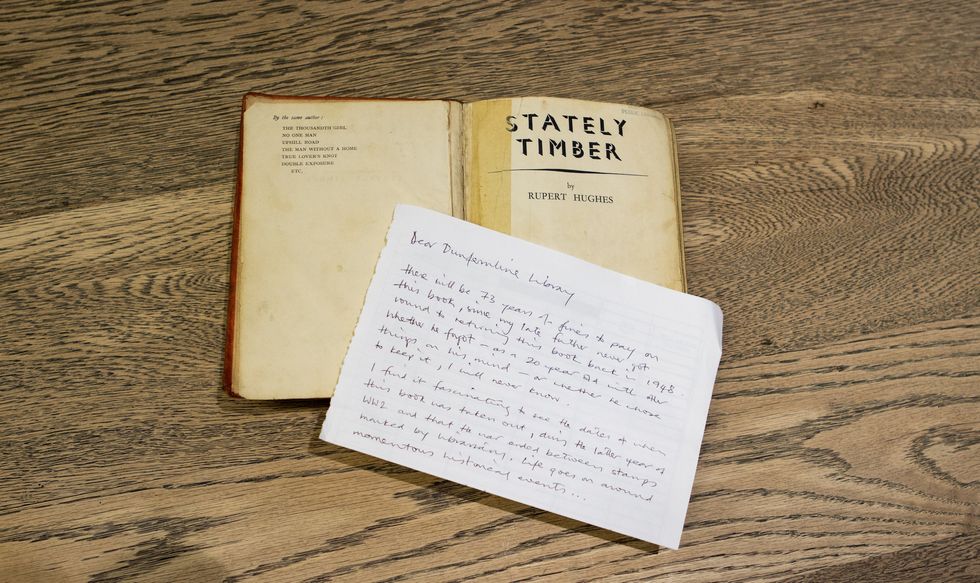 By the same author:
THE THOUSANDTH GIRL
NO ONE MAN
UPHILL ROAD
THE MAN WITHOUT A HOME
TRUE LOVER'S KNOT
DOUBLE EXPOSURE
ETC.
STATELY
TIMBER
by
RUPERT HUGHES
Dear Dunfermline Library
there will be 73 years of fines to pay on
this book, since my late father never got
round to returning this book back in 1948.
Whether he forgot – as a 20 year old with other
things on his mind – or whether he chose
to keep it, I will never know.
I find it fascinating to see the dates of when
this book was taken out, during the latter year of
WW2 and that the war ended between stamps
marked by librarians. Life goes on around
momentous historical events...